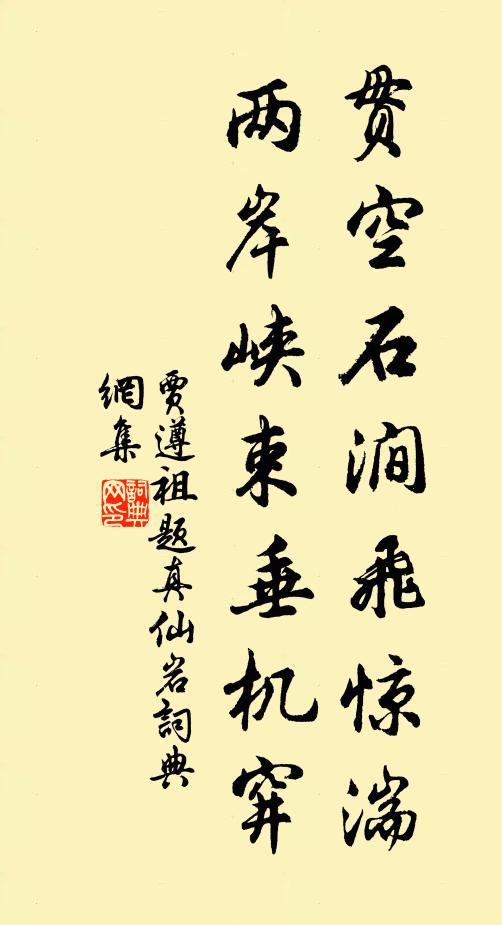 贯空石涧飞惊湍
两岸峡束垂机穽
贾遵祖题真仙岩詞典
網集
詞典网印